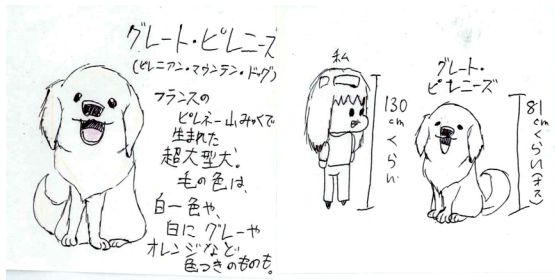 グレート・ピレニーズ
(ピレニアン・マウンテン・ドッグ)
フランスの
ピレネー山みゃくで
生まれた
超大型犬。
毛の色は、
白一色や、
白にグレーや
オレンジなど
色つきのものも。
私
130cmくらい
グレート・
ピレニーズ
81cmくらい(オス)